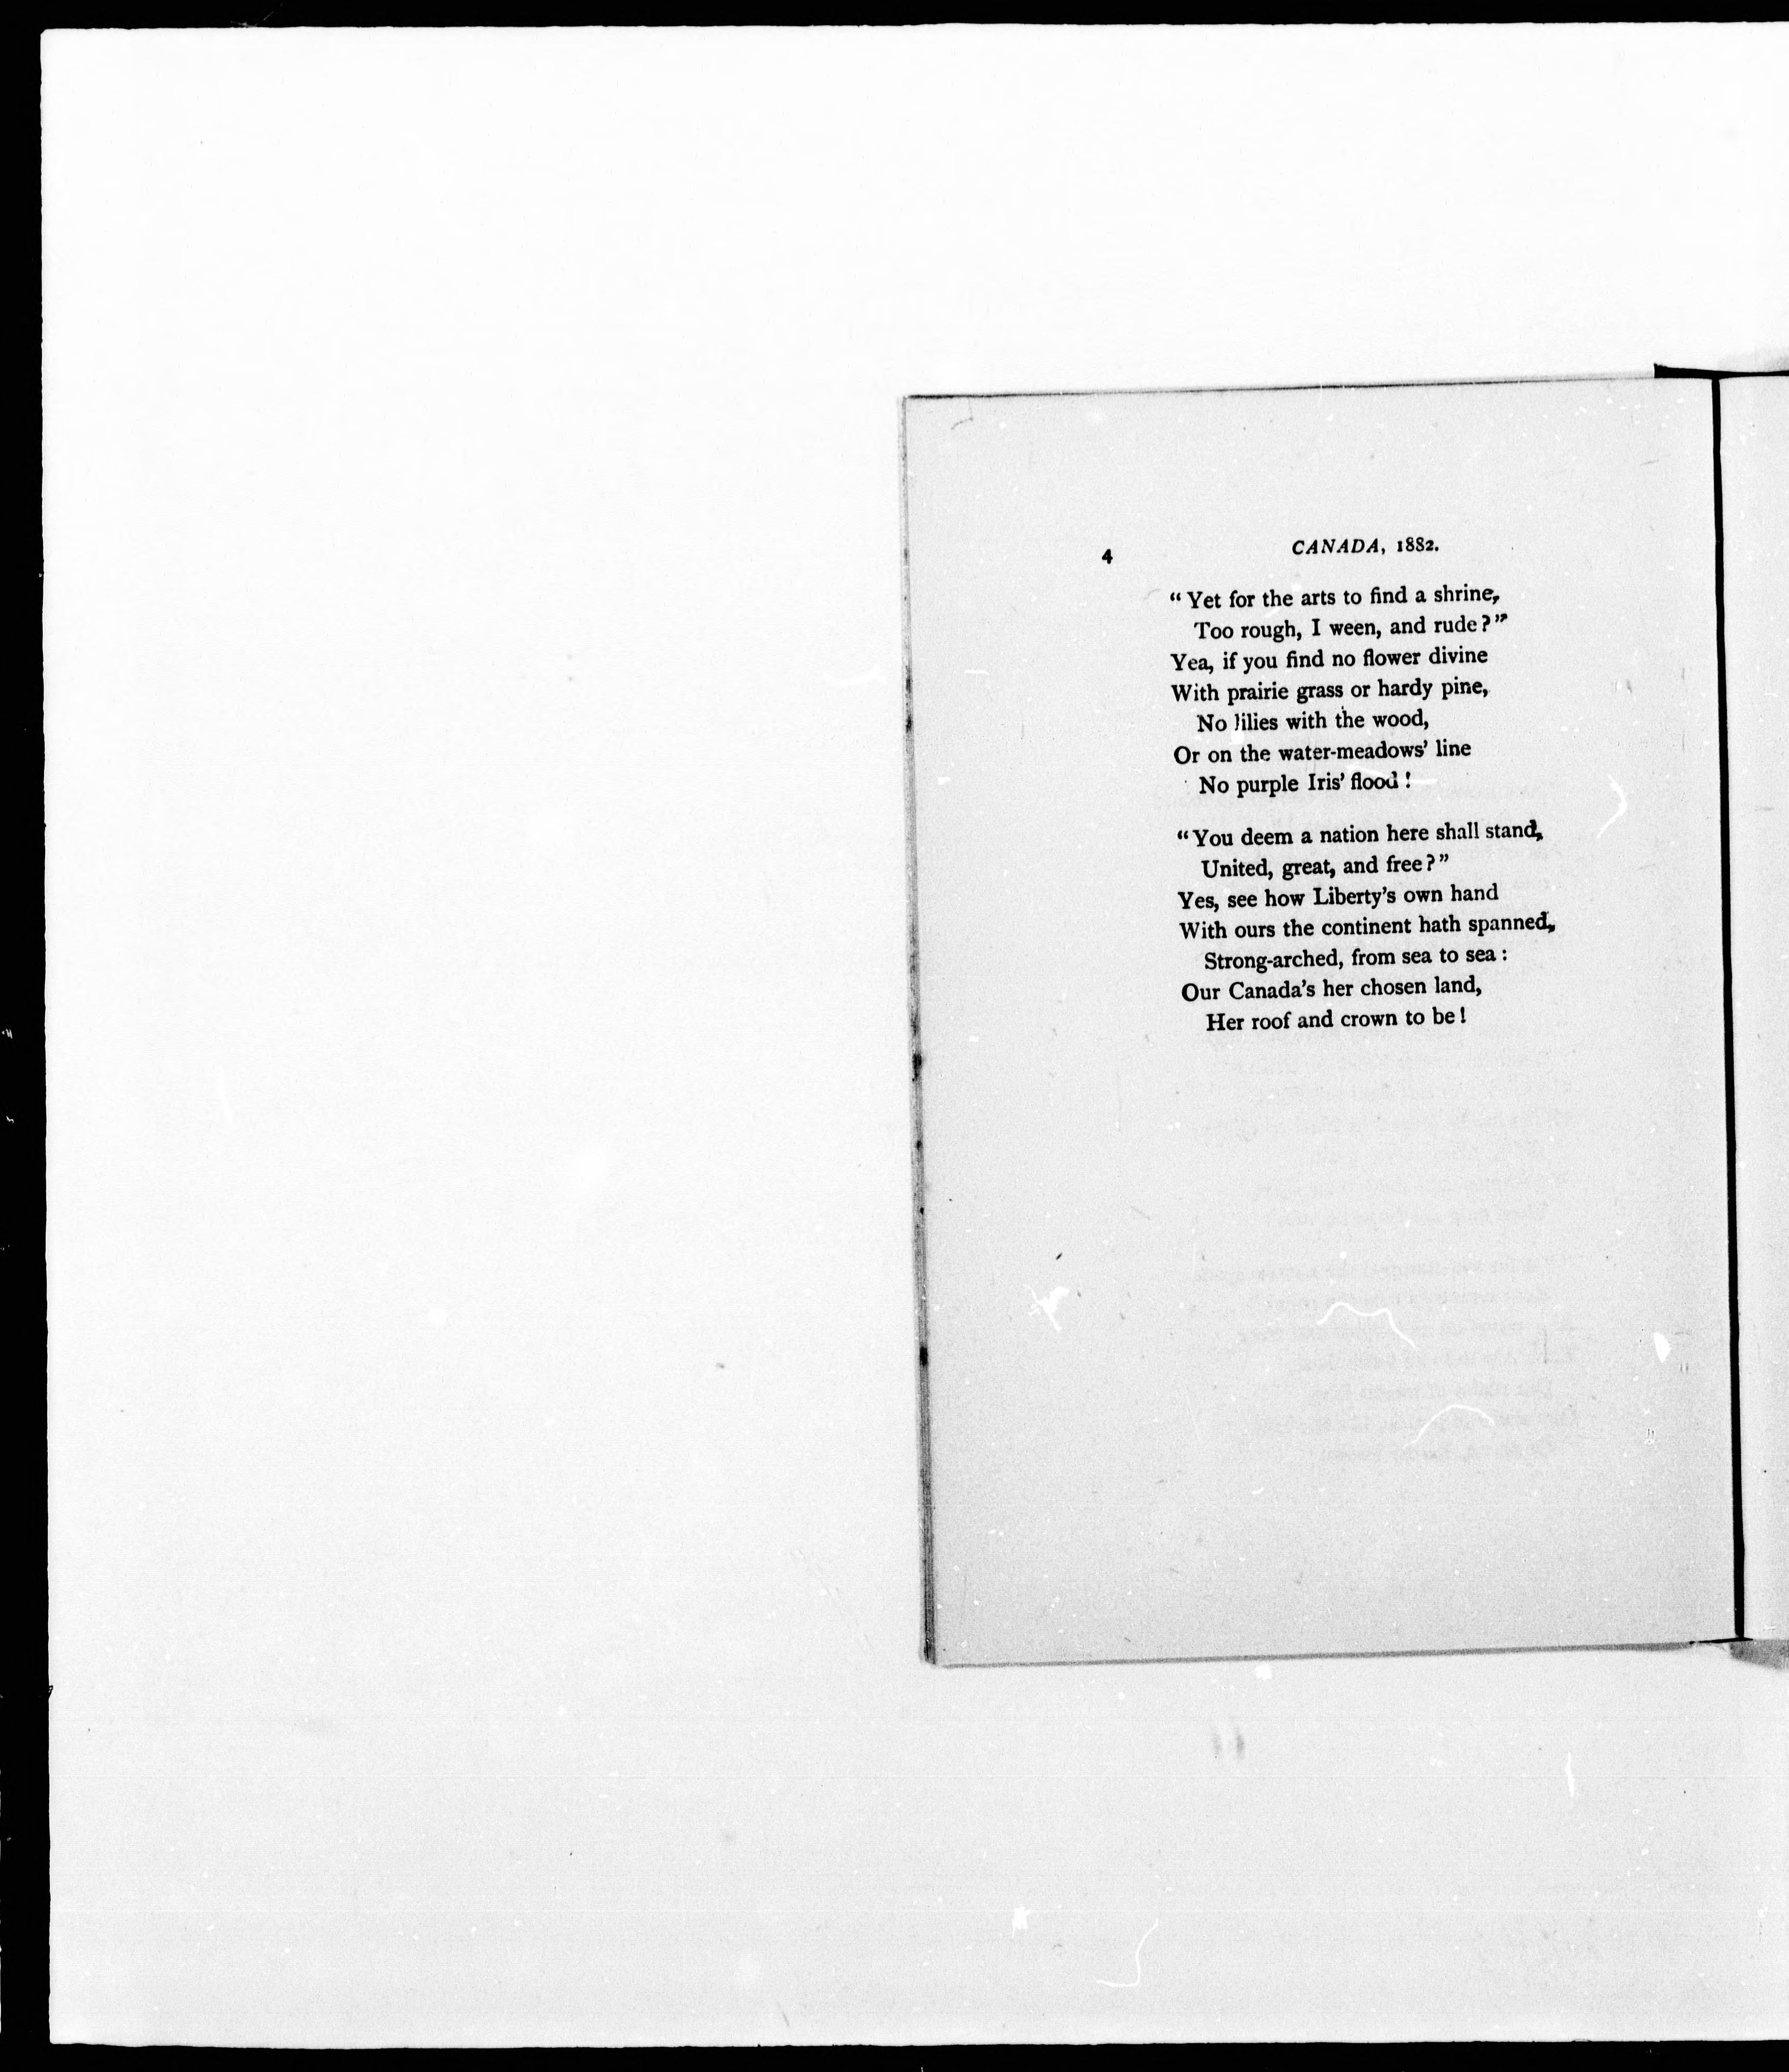 4 CANADA, 1882.
“Yet for the arts to find a shrine,
Too rough, I ween, and rude?”
Yea, if you find no flower divine
With prairie grass or hardy pine,
No lilies with the wood,
Or on the water-meadows’ line
No purple Iris’ flood!
“You deem a nation here shall stand,
United, great, and free?”
Yes, see how Liberty’s own hand
With ours the continent hath spanned,
Strong-arched, from sea to sea:
Our Canada’s her chosen land,
Her roof and crown to be!